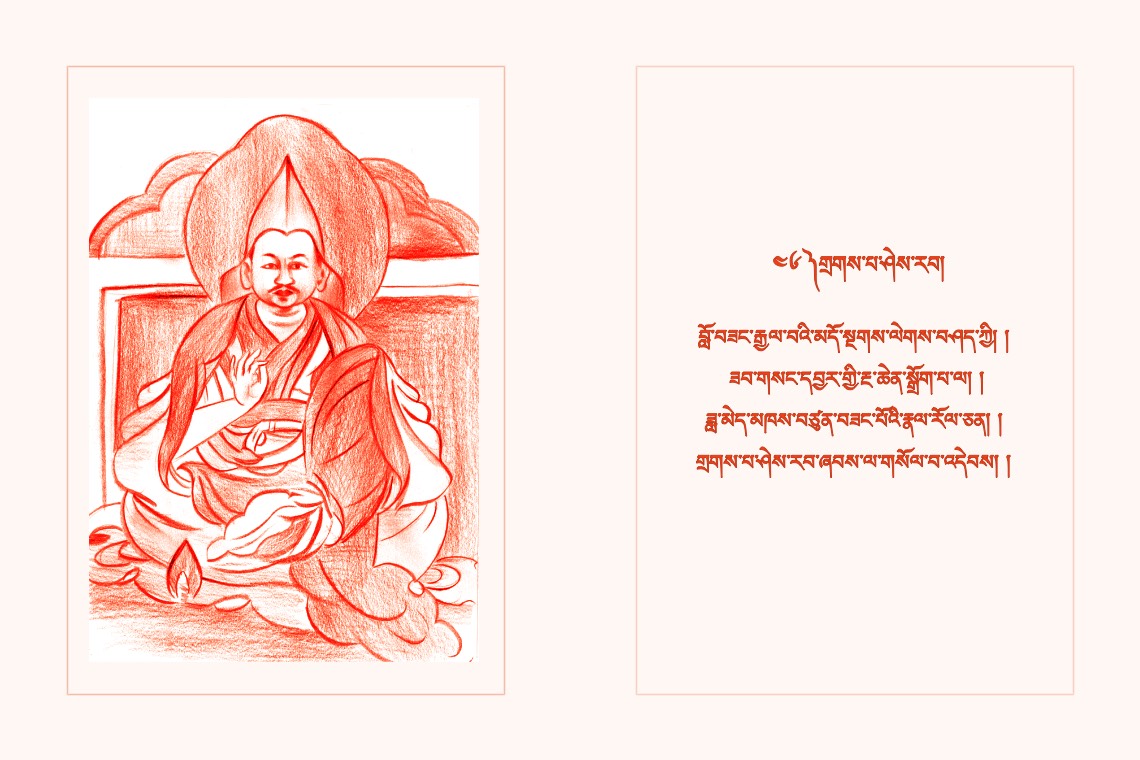 ༤༦ ༽གྲགས་པ་ཤེས་རབ།
བློ་བཟང་རྒྱལ་བའི་མདོ་སྔགས་ལེགས་བཤད་ཀྱི། །
ཟབ་གསང་དབྱར་གྱི་རྔ་ཆེན་སྒྲོག་པ་ལ། །
ཟླ་མེད་མཁས་བཙུན་བཟང་པོའི་རྣལ་རོལ་ཅན། །
གྲགས་པ་ཤེས་རབ་ཞབས་ལ་གསོལ་བ་འདེབས། །